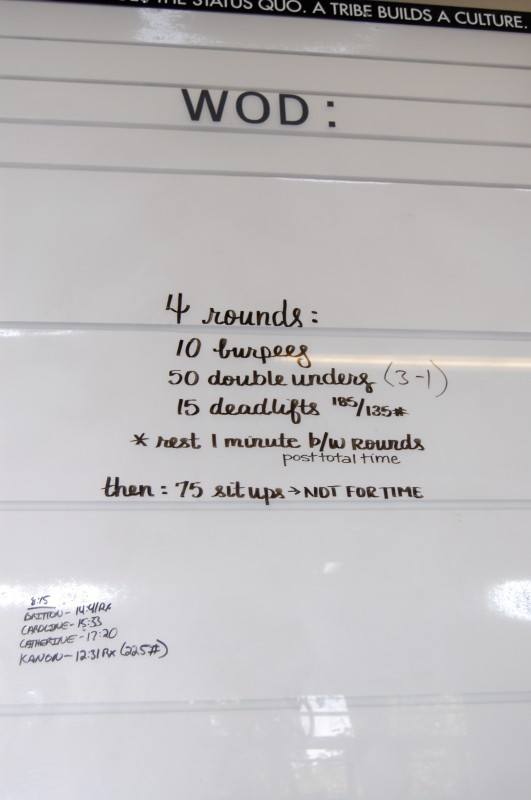 THE STATUS QUO. A TRIBE BUILDS A CULTURE.
WOD:
4 rounds:
10 burpees
50 double unders (3-1)
15 deadlifts 185/135#
* rest 1 minute b/w Rounds
post total time
then: 75 situps → NOT FOR TIME
8:15
BRITTON - 14:41 Rx
CAROLINE - 15:33
CATHERINE - 17:20
KANON - 12:31 Rx (225#)